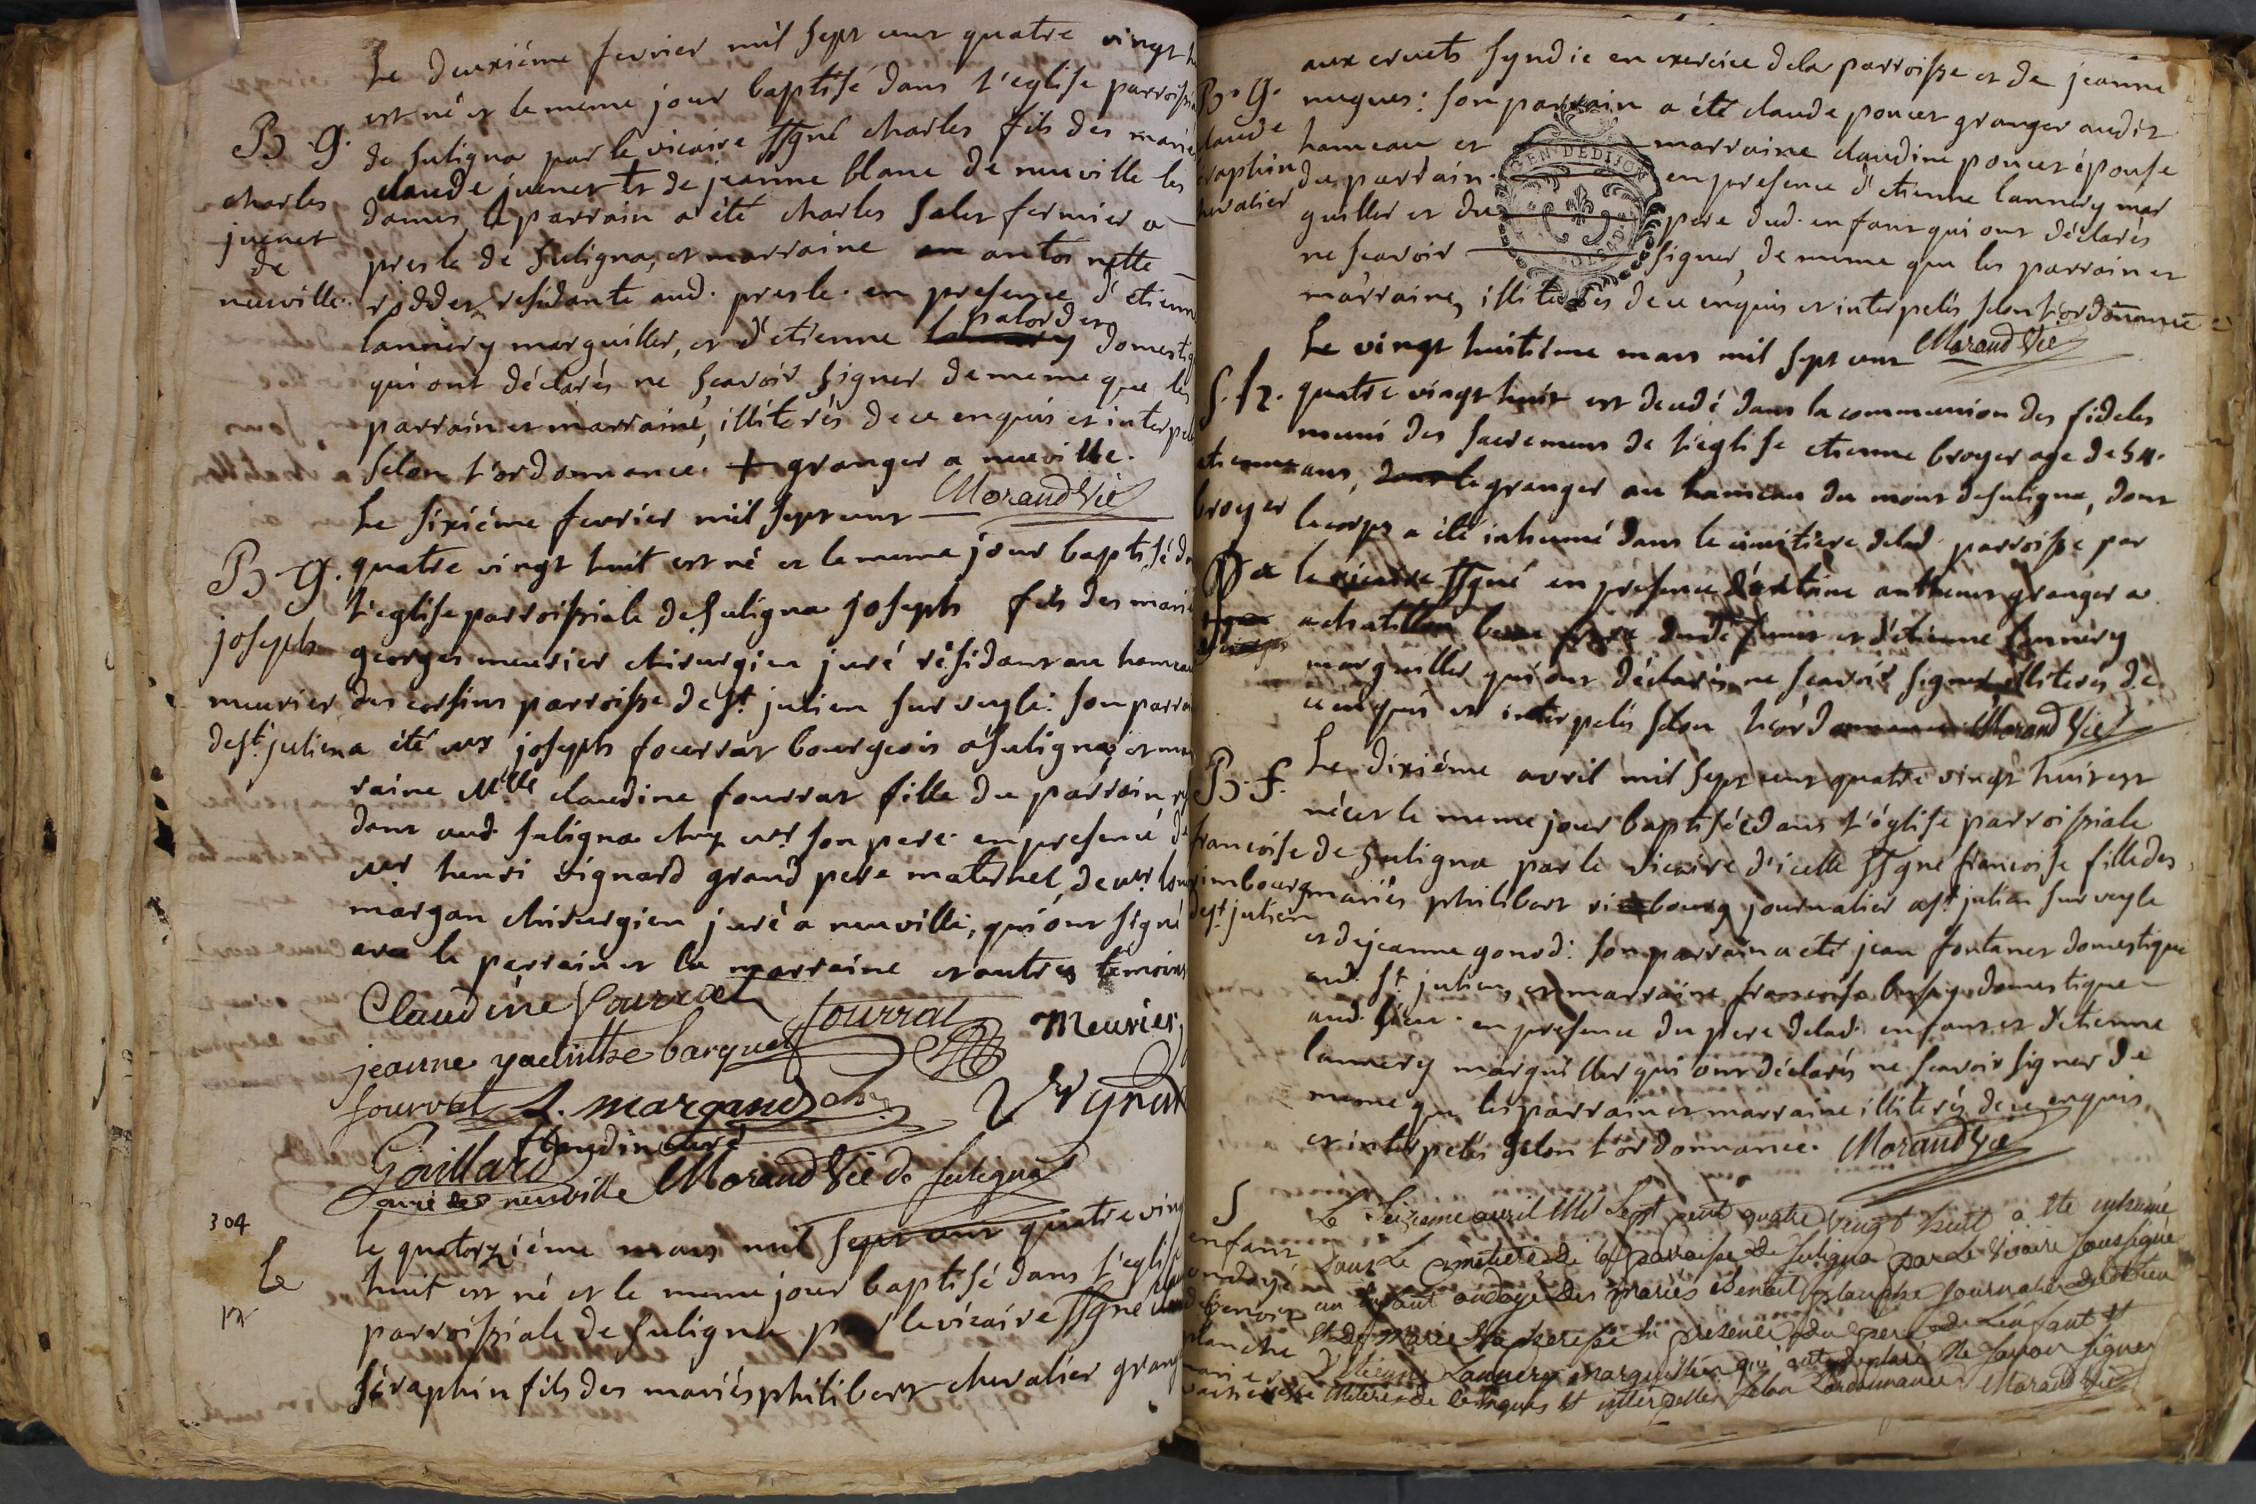 Le deuxiéme fevrier mil sept cent quatre vingt h
est né et le meme jour baptisé dans l'eglise parroissia
B. G. de suligna par le vicaire ssgné charles fils des marie
charles claude juenet et de jeanne blanc de neuville les
juenet dames, le parrain a été charles salet fermier a
de presle de suligna, et marraine antoinette
neuville. residante aud. presle. en presence d'etienn
lannery marguiller, et d'etienne domestiq
qui ont déclarés ne scavoir signer de meme que les
parrain et marraine, illiterés de ce enquis et interpel
selon l'ordonnance. + granger a neuville.
Le sixiéme fevrier mil sept cent Moraud Vic
B. G. quatre vingt huit est né et le meme jour baptisé da
l'eglise parroissiale de suligna joseph fils des marie
joseph georges meurier chirurgien juré résidant au hameau
meurier des corsins parroisse de St julien sur veyle: son parra
de St julien a été mr joseph fourrat bourgeois a suligna, et mar
raine Melle claudine fourrat fille du parrain
dant aud. suligna chez mr son pere. en presence de
mr henri vignard grand pere maternel, de mr
margan chirurgien juré a neuville, qui ont signé
avec le parrain et la marraine et autres temoins
Claudine fourrat fourrat Meurier
jeanne yacinthe barquet
fourrat L. margand ch
Gaillard curé
curé de neuville Moraud Vic de suligna
304
le quatorziéme mars mil sept cent quatre ving
Le huit est né et le meme jour baptisé dans l'eglise
12 parroissiale de suligna par le vicaire ssgné claud
séraphin fils des mariés philibert chevalier grang
aux cruets syndic en exercice de la parroisse et de jeanne
B. G. nugues: son parrain a été claude poncet granger audit
claude hameau et marraine claudine poncet épouse
seraphin du parrain. en presence d'etienne lannery mar
chevalier guiller et du pere dud. enfant qui ont déclarés
ne scavoir signer, de meme que les parrain et
marraine, illiterés de ce enquis et interpelés selon l'ordonnance
Le vingt huitiéme mars mil sept cent Moraud Vic
S. h. quatre vingt huit est decedé dans la communion des fideles
muni des sacremens de l'eglise etienne broyer age de 54.
etienne ans, granger au hameau du mont de suligna, dont
broyer le corps a été inhumé dans le cimitiere delad. parroisse par
le vicaire ssgné en presence d'antoine anthenet granger a
a chatillon beau frere dud. et d'etienne lannery
marguiller, qui ont déclarés ne scavoir signer illiterés de
ce enquis et interpelés selon l'ordonnance Moraud Vic
B. f. Le dixiéme avril mil sept cent quatre vingt huit est
néeet le meme jour baptiséedans l'église parroissiale
francoise de suligna par le vicaire d'icelle ssgné francoise fille des
rimbourg mariés philibert rimbourg journalier a St julien sur veyle
de St julien et dejeanne gonod: son parrain a été jean fontanet domestique
aud. St julien, et marraine francoise domestique
aud. lieu. en presence du pere delad. enfant et d'etienne
lannery marguiller qui ont déclarés ne scavoir signer de
meme que les parrain et marraine illiterés de ce enquis
et interpelés selon l'ordonnance. Moraud Vic
S Le Seizeme avril Mil Sept cent quatre vingt huit a ete inhumé
enfant dans Le Cemetiere de la parroisse de Suligna par Le Vicaire soussigné
ondoyé un Enfant ondoyé des mariés Benoit planche journalier
de benoit et de marie En presence du pere de L'enfant et
planche D'Etienne Lannery marguillier qui ont declaré Ne Savoir Signer
marie illiteres de Ce Enquis Et interpelles Selon L'ordonnance Moraud Vic